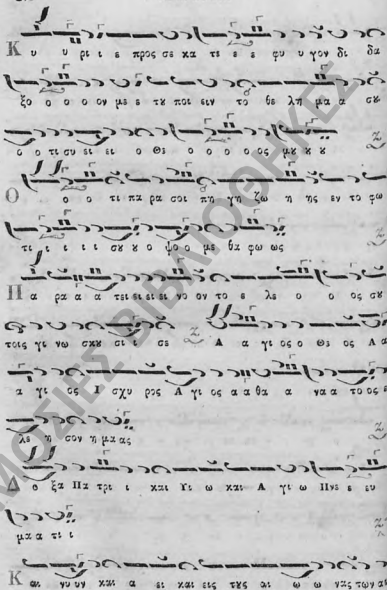 Κ υ υ ρι ι ε προς σε κα τε ε ε φυ υ γον δι δα
ξο ο ο ο ον με ε τȣ ποι ειν το θε λη μα α σȣ
ο ο τι συ ει ει ο Θε ο ο ο ο ος μȣ ȣ ȣ
Ο ο ο τι πα ρα σοι πη γη ζω η ης εν το φω
τι ι ι ι ι σȣ ȣ ο ψο ο με θα φω ως
Π α ρα α α τει ει ει ει ει νο ον το ε λε ο ο ος σȣ
τοις γι νω σκȣ σι ι σε Α α γι ος ο Θε ος Α α
α γι ος Ι σχυ ρος Α γι ος α α θα α να α το ος ε
λε η σον η μα ας
Δ ο ξα Πα τρι ι και Υι ω και Α γι ω Πνε ε ευ
μα α τι ι
Κ αι νυ υν και α ει και εις τȣς αι ω ω νας των αι
ΜΟΣΙΕΣ ΒΙΒΛΙΟΘΗΚΕΣ